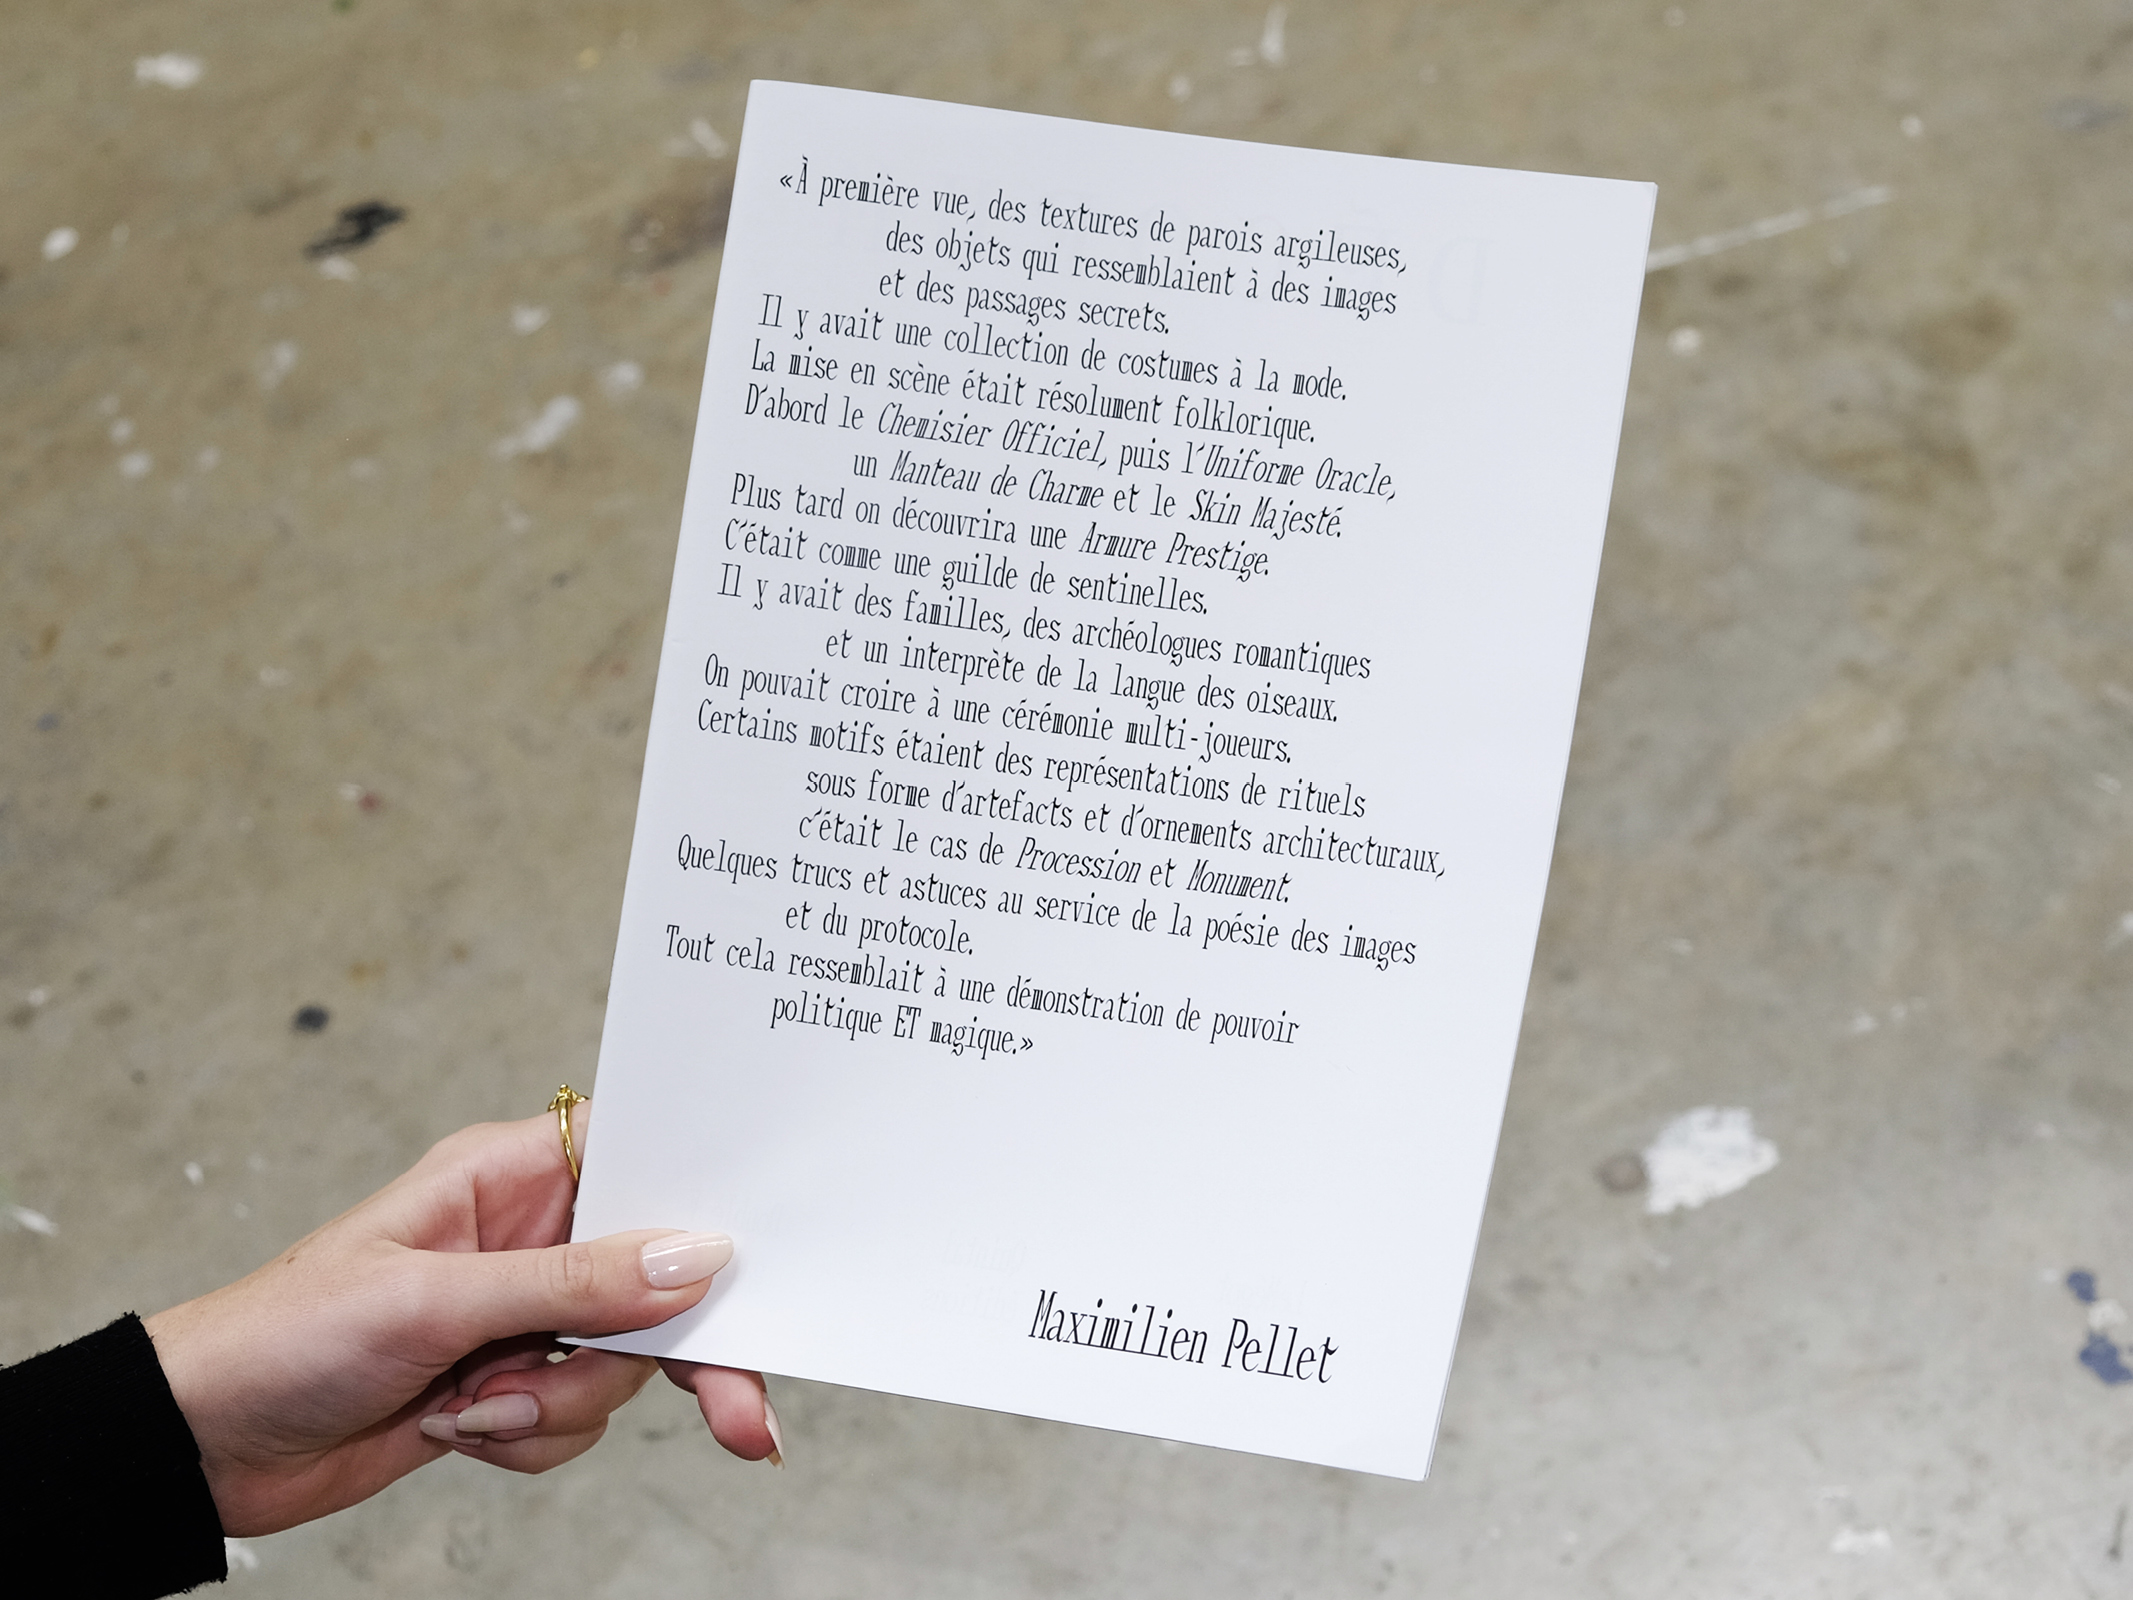 «À première vue, des textures de parois argileuses,
des objets qui ressemblaient à des images
et des passages secrets.
Il y avait une collection de costumes à la mode.
La mise en scène était résolument folklorique.
D'abord le Chemisier Officiel, puis l'Uniforme Oracle,
un Manteau de Charme et le Skin Majesté.
Plus tard on découvrira une Armure Prestige.
C'était comme une guilde de sentinelles.
Il y avait des familles, des archéologues romantiques
et un interprète de la langue des oiseaux.
On pouvait croire à une cérémonie multi-joueurs.
Certains motifs étaient des représentations de rituels
sous forme d'artefacts et d'ornements architecturaux,
c'était le cas de Procession et Monument.
Quelques trucs et astuces au service de la poésie des images
et du protocole.
Tout cela ressemblait à une démonstration de pouvoir
politique ET magique.»
Maximilien Pellet